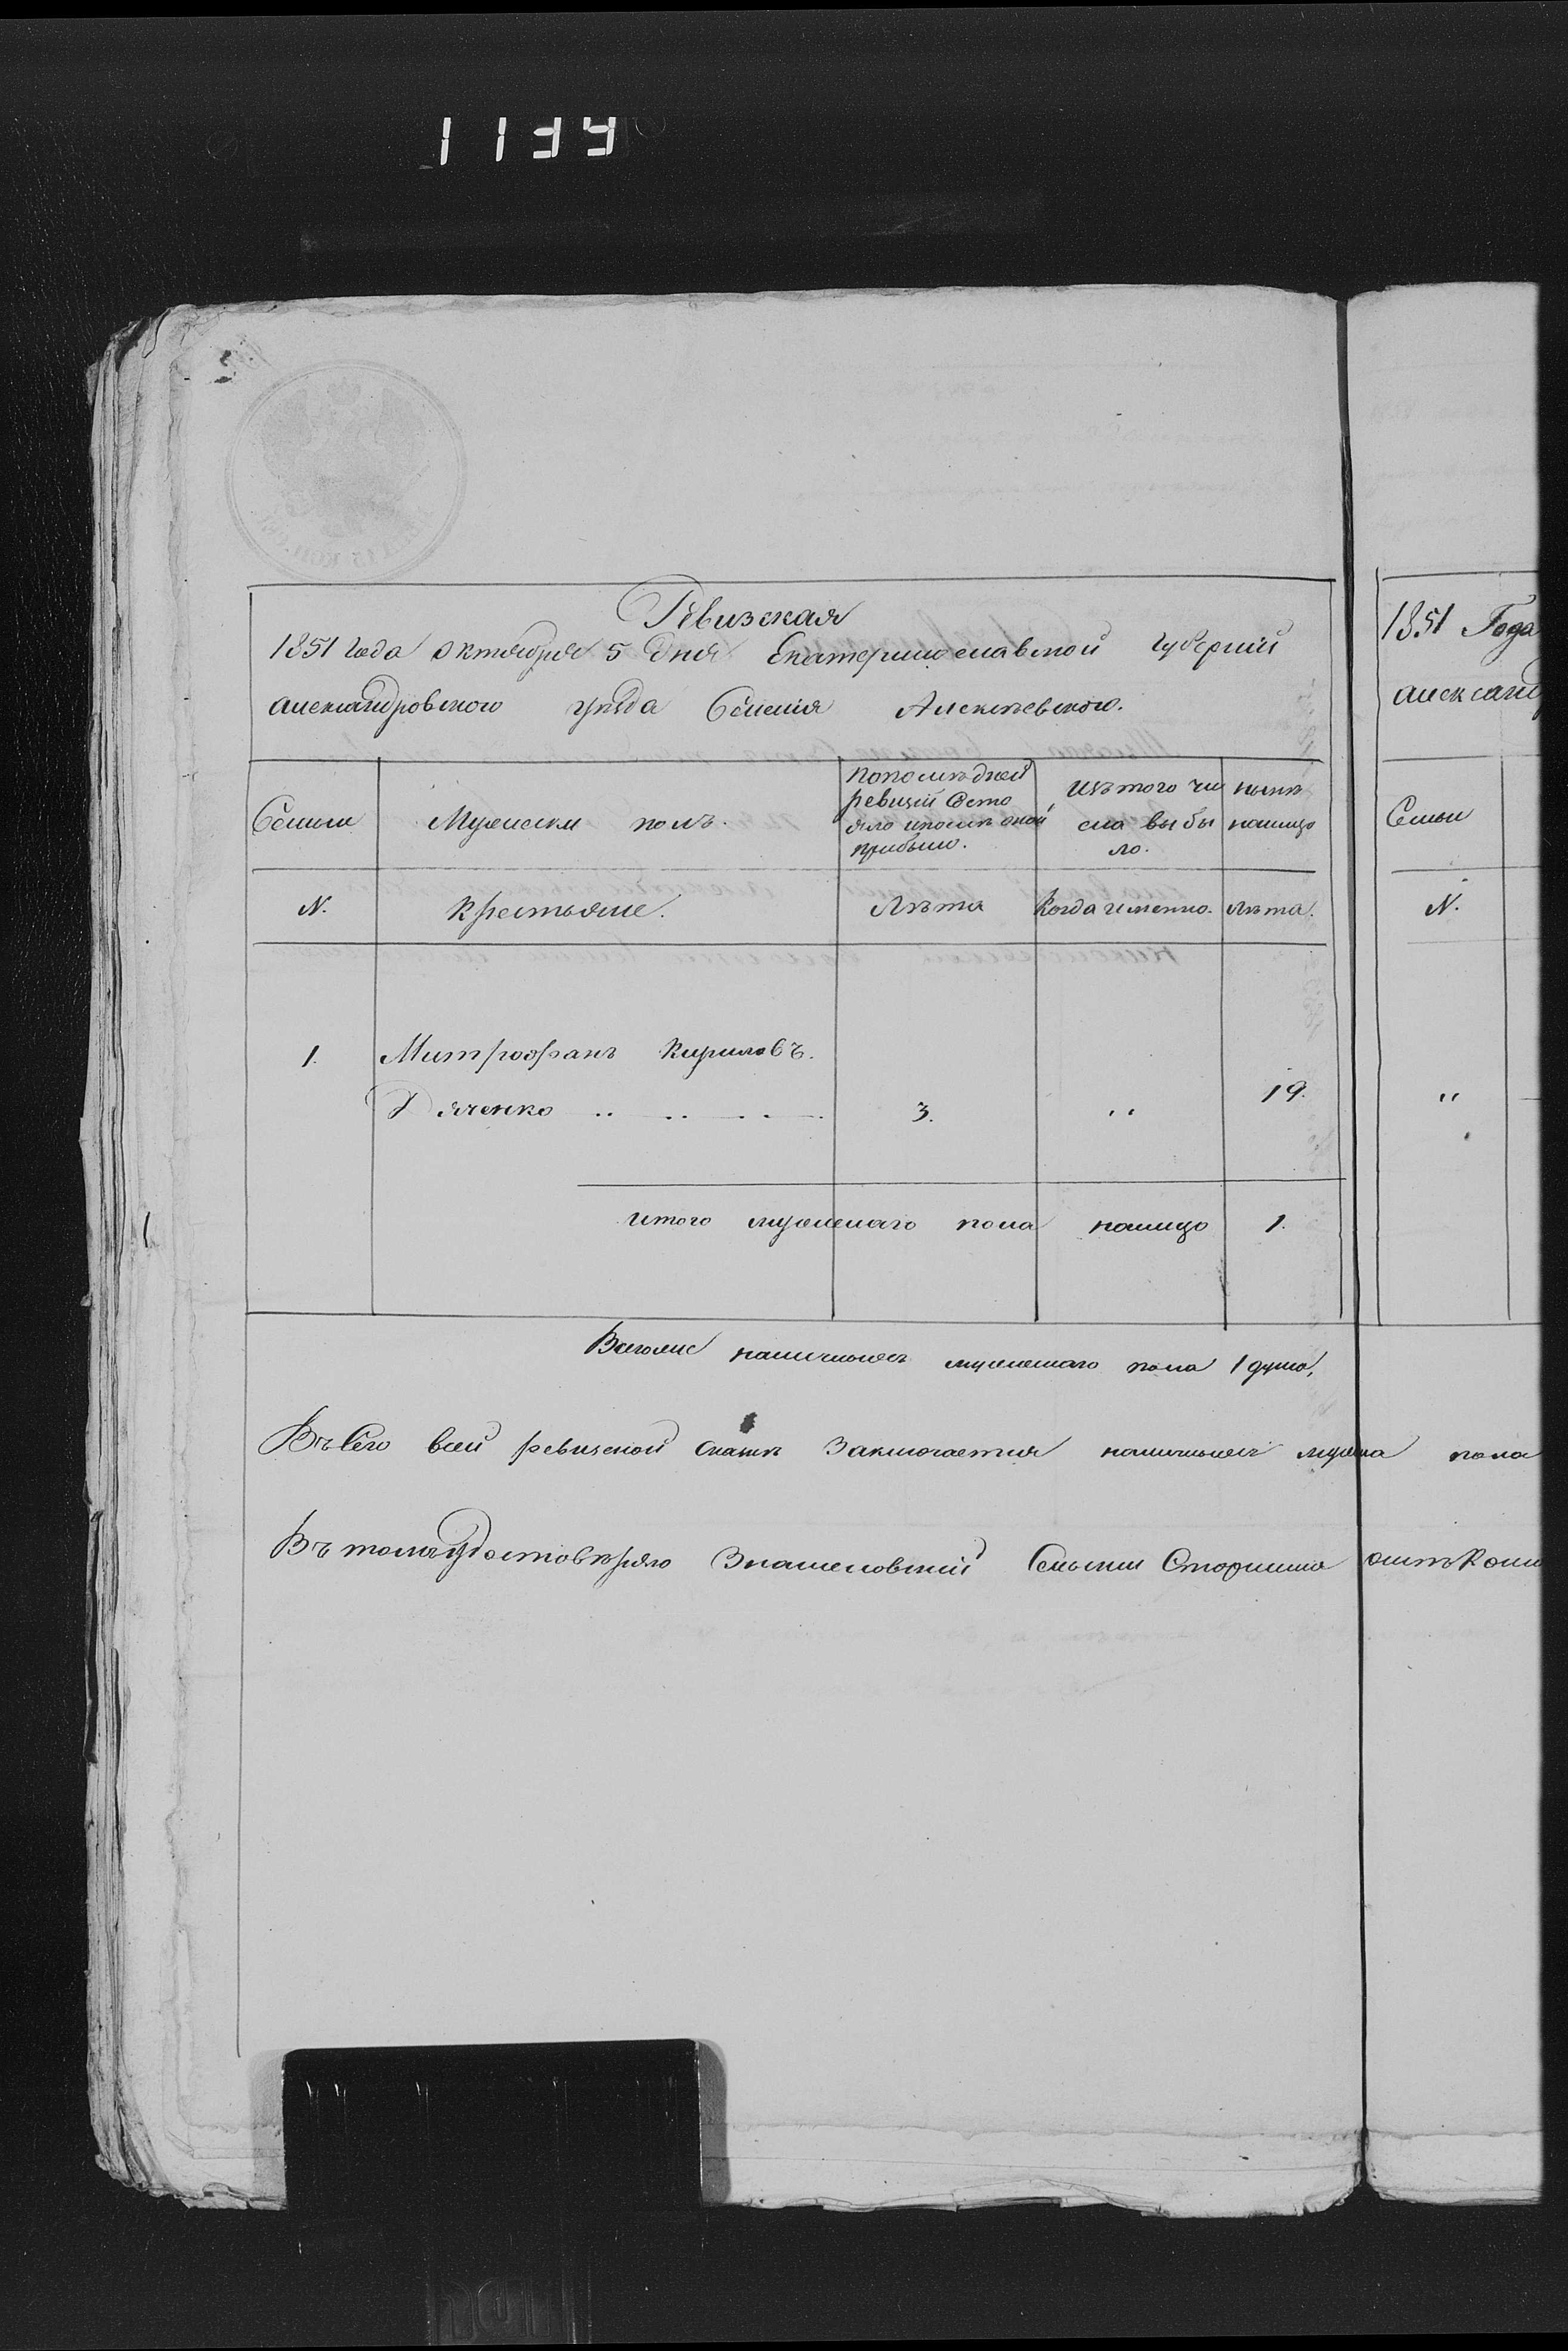 1139
Ревизская
1851 года октября 5 дня Екатеринославской Губернии
александровского уезда Селенія Алексѣевского.
Семьи
Мужески полъ.
пополѣдней
ревизіи состо
яло ипослѣ оной
прибыло.
Изъ того чи
сла выбы
ло.
нынѣ
налицо
N.
крестьяне.
Лѣта
Когда именно.
лѣта.
1. Митрофанъ Кириловъ.
Дяченко .. .. .. .. 3. ,, 19.
итого мужескаго пола налицо 1.
1
Всегоже наличныхъ мужескаго пола 1 душа,
Въ сего всей ревизской сказкѣ Заключается наличныхъ мужска пола
Въ томъ удостовѣряю Знаменовский Сельски Старшина
1851 Года
александ
Семьи
N.
,,